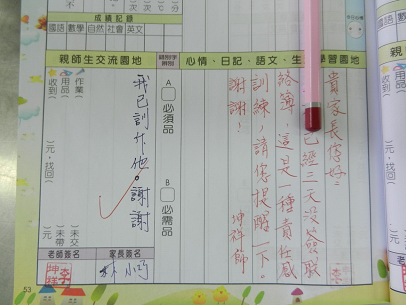 成績記錄
國語 數學 自然 社會 英文
心情、日記、語文、生
學習園地
貴家長您好:
已經三天沒簽聯
絡簿,這是一種責任感
訓練,請您提醒一下。
謝謝! 坤祥師
A 必須品
B 必需品
親師生交流園地
我已訓斥他。謝謝
作業 )未交
用品 )未帶
收到( )元,找回( )元
家長簽名
林小巧
老師簽名
李坤祥
53